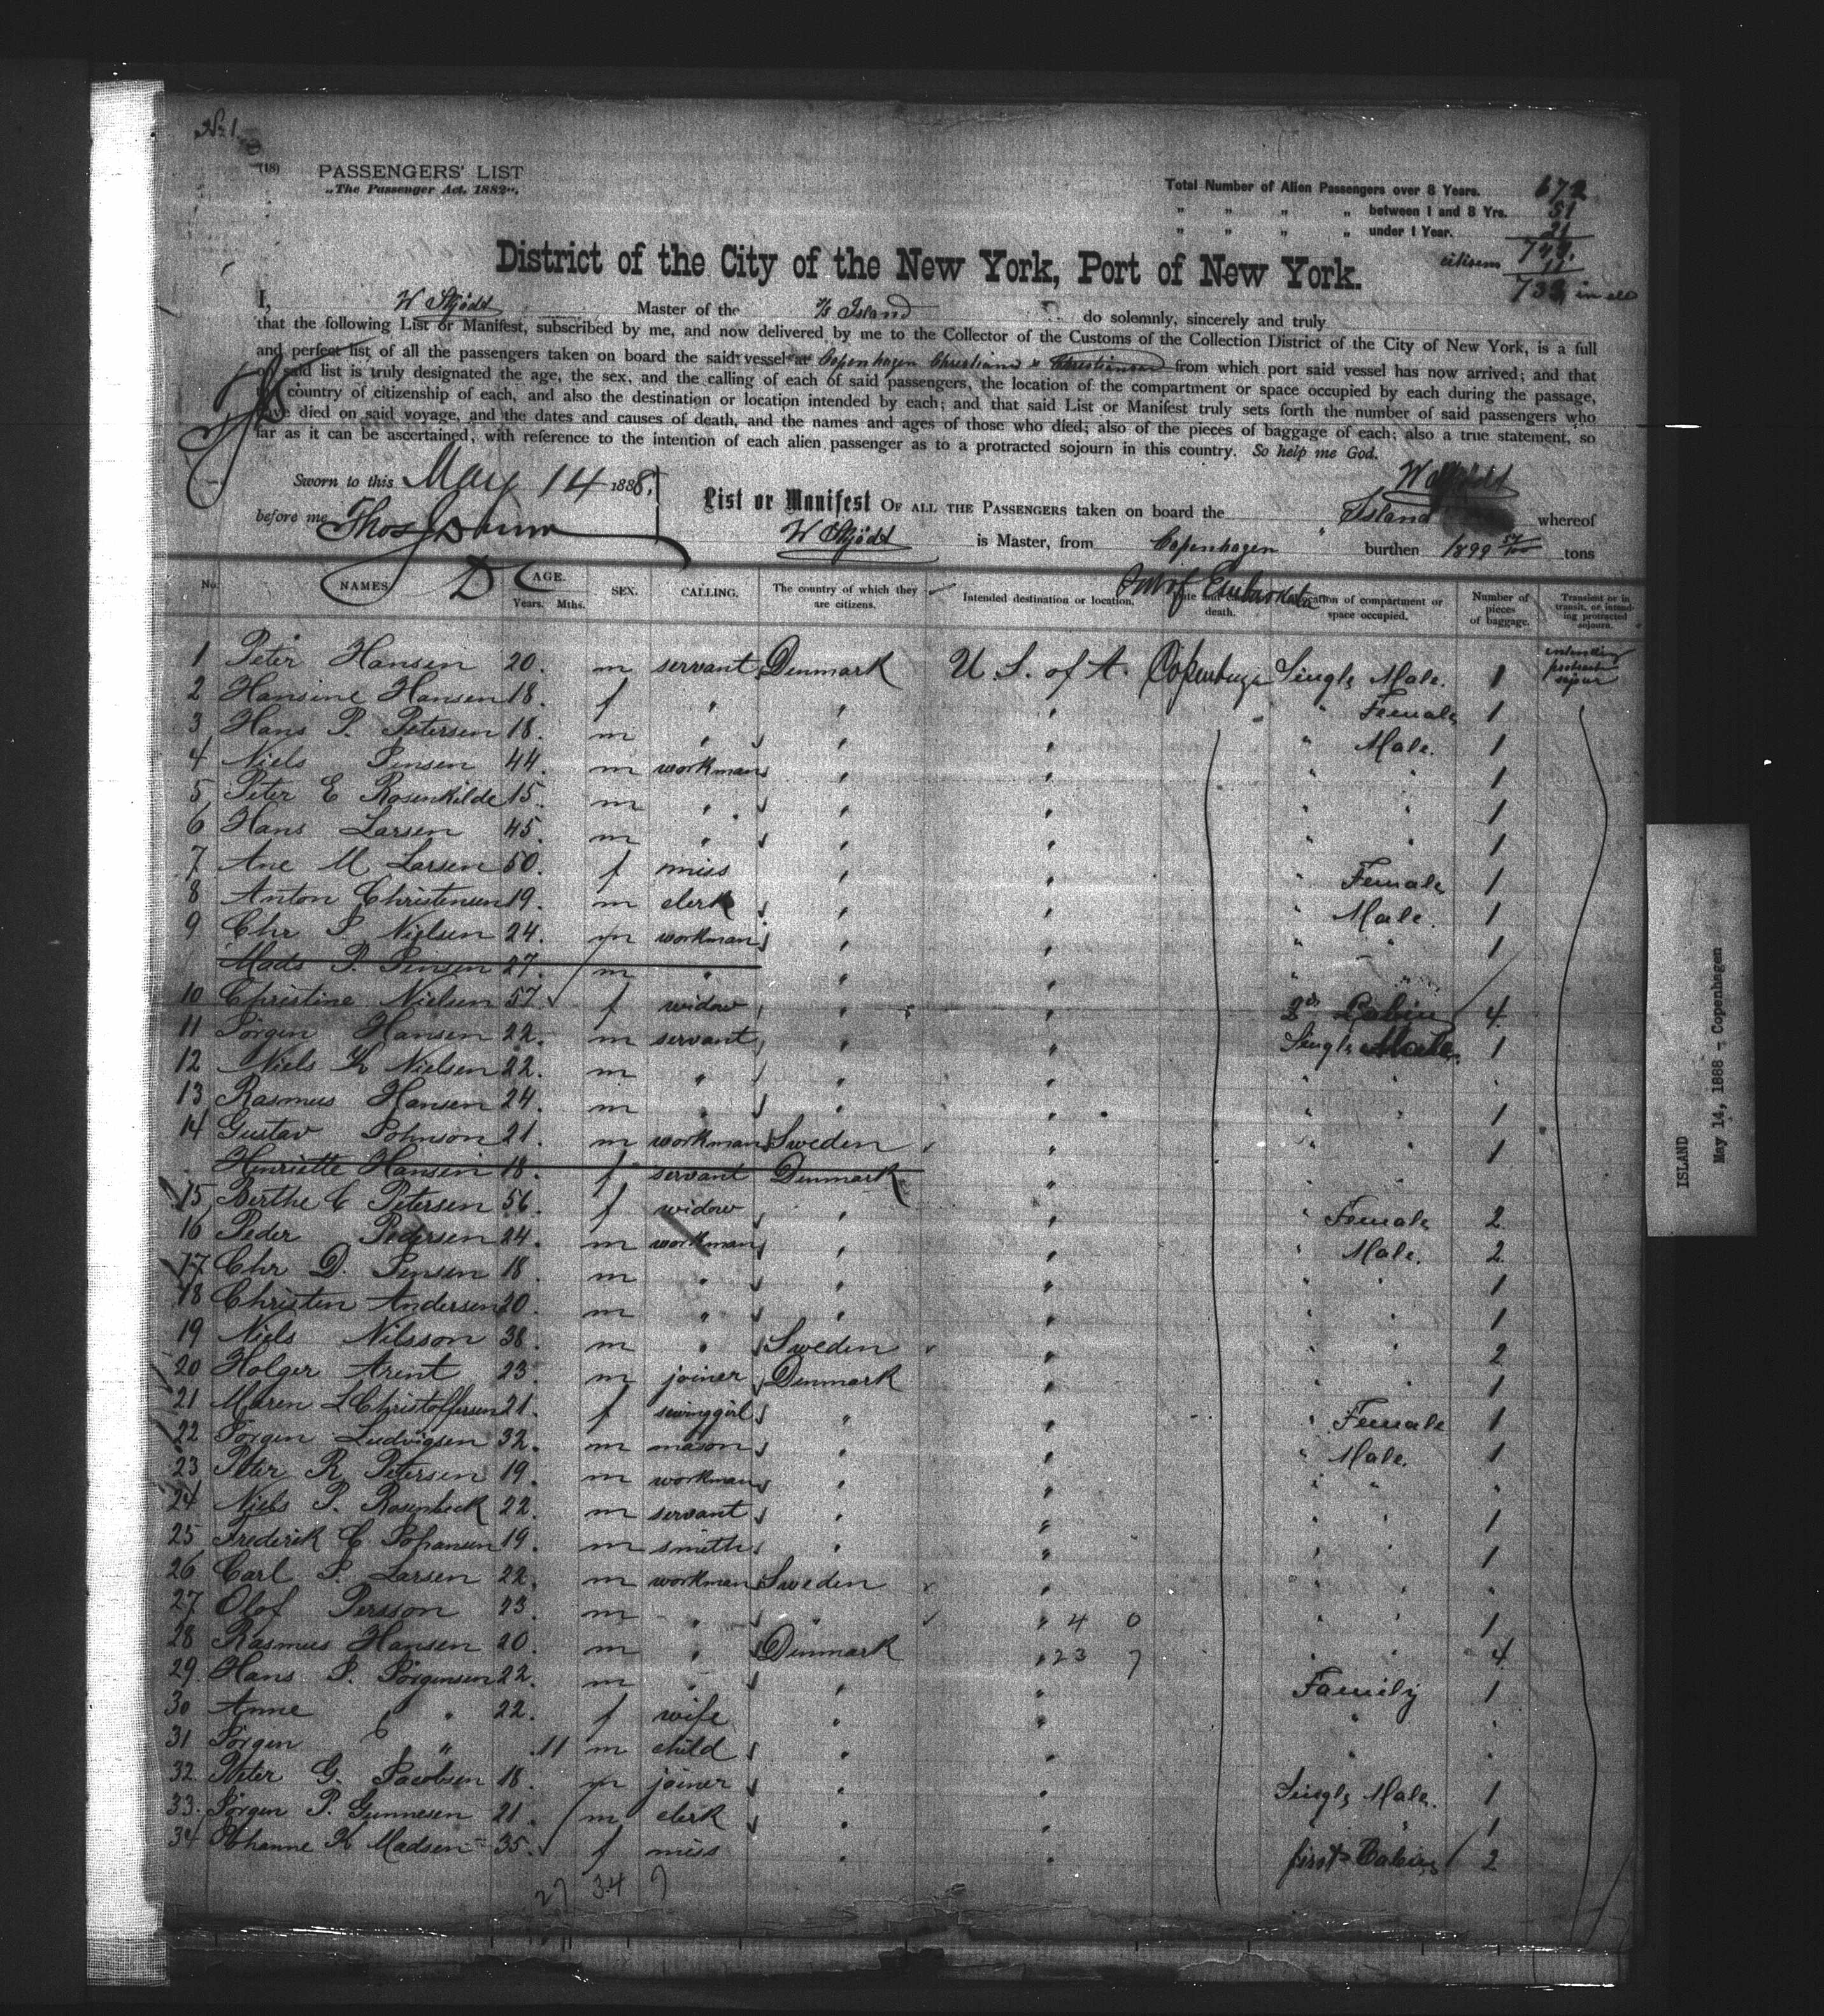 No 1.
(18) PASSENGERS' LIST
„The Passenger Act, 1882".
Total Number of Alien Passengers over 8 Years. 672
" " " " between 1 and 8 Yrs. 51
" " " " under 1 Year. 21
citizens 11
733 in all
District of the City of the New York, Port of New York.
I, W Skjödt Master of the S/S Island do solemnly, sincerely and truly
that the following List or Manifest, subscribed by me, and now delivered by me to the Collector of the Customs of the Collection District of the City of New York, is a full
and perfect list of all the passengers taken on board the said vessel at Copenhagen Christiania & Christiansand from which port said vessel has now arrived; and that
on said list is truly designated the age, the sex, and the calling of each of said passengers, the location of the compartment or space occupied by each during the passage,
country of citizenship of each, and also the destination or location intended by each; and that said List or Manifest truly sets forth the number of said passengers who
have died on said voyage, and the dates and causes of death, and the names and ages of those who died; also of the pieces of baggage of each; also a true statement, so
far as it can be ascertained, with reference to the intention of each alien passenger as to a protracted sojourn in this country. So help me God.
W Skjödt
Sworn to this May 14 1888.
before me Thos Dunn
List or Manifest OF ALL THE PASSENGERS taken on board the Island whereof
W Skjödt is Master, from Copenhagen burthen 1899 tons
No. NAMES. AGE. Years. Mths. SEX. CALLING. The country of which they are citizens. Intended destination or location. Port of Embarkation death. location of compartment or space occupied. Number of pieces of baggage. Transient or in transit, or intending protracted sojourn.
1 Peter Hansen 20. m servant Denmark U. S. of A. Copenhagen Single Male. 1 intending protracted sojour
2 Hansine Hansen 18. f " " " " Female 1
3 Hans P. Petersen 18. m " " " " Male. 1
4 Niels Jensen 44. m workman " " " " 1
5 Peter E Rosenkilde 15. m " " " " " 1
6 Hans Larsen 45. m " " " " " 1
7 Ane M Larsen 50. f miss " " " Female 1
8 Anton Christensen 19. m clerk " " " Male. 1
9 Chr P. Nielsen 24. m workman " " " " 1
Mads P. Jensen 27. m " " " " "
10 Christine Nielsen 57 f widow " " 2d Cabin 4
11 Jörgen Hansen 22. m servant " " Single Male. 1
12 Niels K Nielsen 22. m " " " " " "
13 Rasmus Hansen 24. m " " " " " 1
14 Gustav Johnson 21. m workman Sweden " " " 1
Henriette Hansen 18. f servant Denmark " " "
15 Berthe C Petersen 56 f widow " " " Female 2
16 Peder Pedersen 24. m workman " " " Male. 2
17 Chr D. Jensen 18. m " " " " " 1
18 Christen Andersen 20. m " " " " " 1
19 Niels Nilsson 38. m " Sweden " " " 2
20 Holger Arent 23. m joiner Denmark " " " 1
21 Maren L Christoffersen 21. f sewinggirl " " " Female 1
22 Jörgen Ludvigsen 32. m mason " " " Male. 1
23 Peter R Petersen 19. m workman " " " " "
24 Niels P. Rosenbeck 22. m servant " " " " 1
25 Frederik C Johansen 19. m smith " " " " 1
26 Carl P. Larsen 22. m workman Sweden " " " "
27 Olof Persson 23. m " " " 4 0 " " 1
28 Rasmus Hansen 20. m " Denmark " 23 7 " " 4
29. Hans P. Jörgensen 22. m " " " Family 1
30 Anne " " 22. f wife " " " "
31 Jörgen " " 11 m child " " " "
32. Peter G. Jacobsen 18. m joiner " " Single Male. 1
33. Jörgen P. Gunnesen 21. m clerk " " " 1
34 Johanne K Madsen 35. f miss " " first Cabin 2
27 34 7
ISLAND
May 14, 1888 - Copenhagen